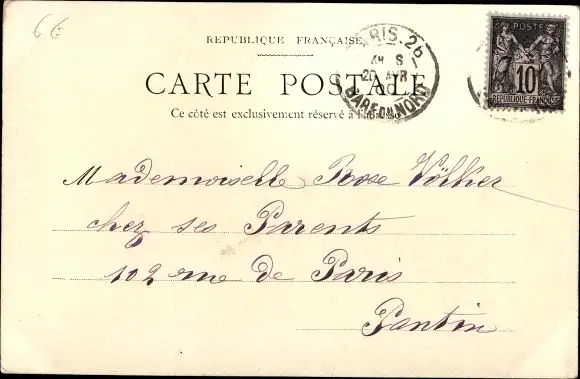 6€
REPUBLIQUE FRANÇAISE
CARTE POSTALE
Ce côté est exclusivement réservé à l'adresse
PARIS-26
20 AVR
GARE DU NORD
POSTE
10
REPUBLIQUE FRANÇAISE
Mademoiselle Rose Völker
chez ses Parents
102 rue de Paris
Pantin